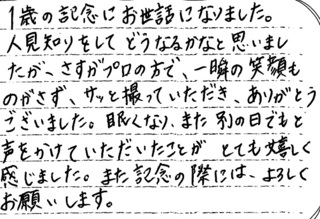 1歳の記念にお世話になりました。
人見知りをして どうなるかなと思いまし
たが、さすがプロの方で、一瞬の笑顔も
のがさず、サッと撮っていただき、ありがとう
ございました。眠くなり、また 別の日でもと
声をかけていただいたことが とても嬉しく
感じました。また記念の際には、よろしく
お願いします。